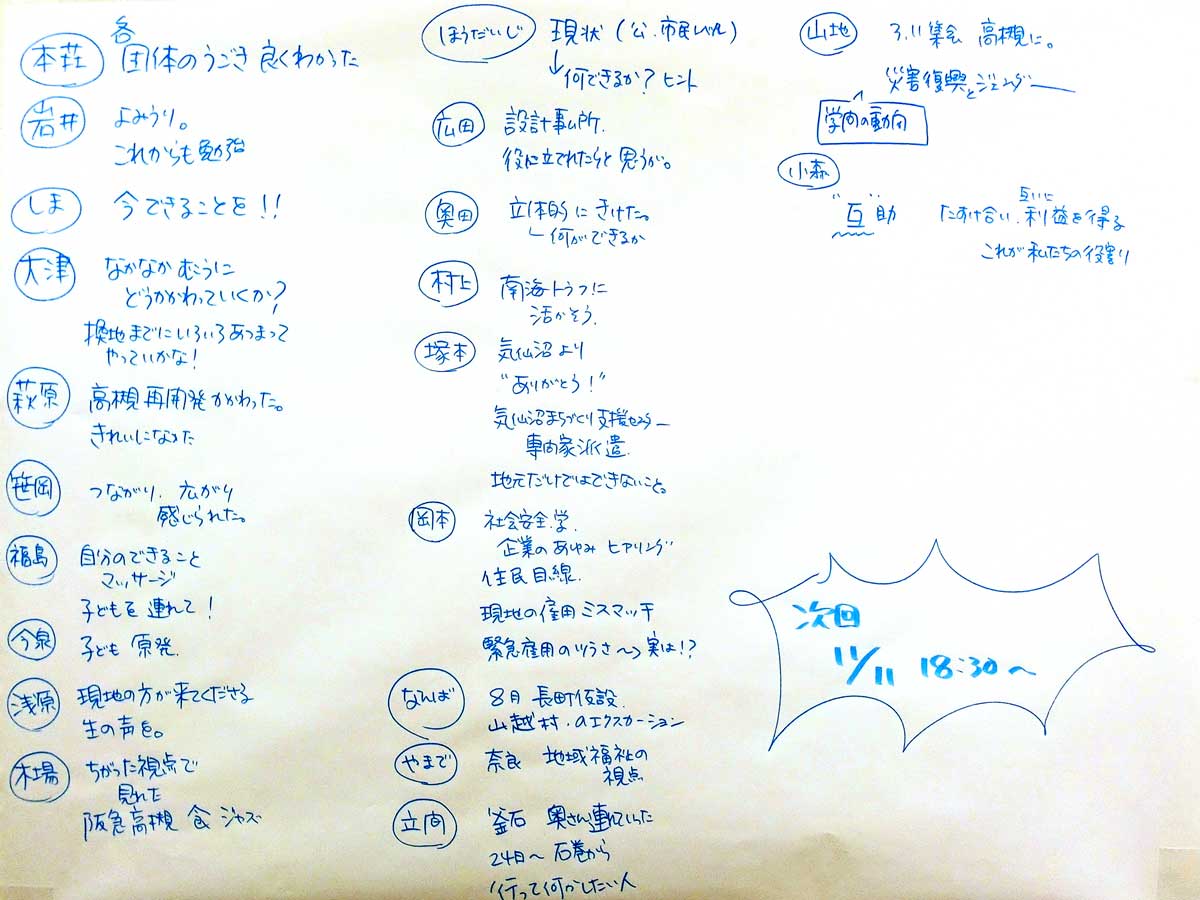 本荘 各団体のうごき 良くわかった
岩井 よみうり。
これからも勉強
しま 今できることを!!
大津 なかなか むこうに
どうかかわっていくか?
換地までにいろいろあつまって
やっていかな!
萩原 高槻再開発かかわった。
きれいになった
笹岡 つながり、広がり
感じられた。
福島 自分のできること
マッサージ
子どもを連れて!
今泉 子ども 原発.
浅原 現地の方が来てくださる
生の声を。
木場 ちがった視点で
見れた
阪急高槻 食 ジャズ
ほうだいじ 現状 (公、市民レベル)
↓何できるか? ヒント
広田 設計事ム所.
役に立てれたらと思うが。
奥田 立体的にきけた。
何ができるか
村上 南海トラフに
活かそう.
塚本 気仙沼より
"ありがとう!"
気仙沼まちづくり支援センター
専門家派遣.
地元だけではできないこと。
岡本 社会安全学.
企業のあゆみ ヒアリング
住民目線.
現地の雇用ミスマッチ
緊急雇用のツラさ〜〉実は!?
なんば 8月 長町仮設.
山越村.のエクスカーション
やまで 奈良 地域福祉の
視点
立間 釜石 奥さん連れていった
24日〜 石巻から
行って何かしたい人
山地 3.11集会 高槻に。
災害復興とジェンダー
学内の動向
小森
"互"助 たすけ合い、互いに利益を得る
これが私たちの役割り
次回
11/11 18:30〜